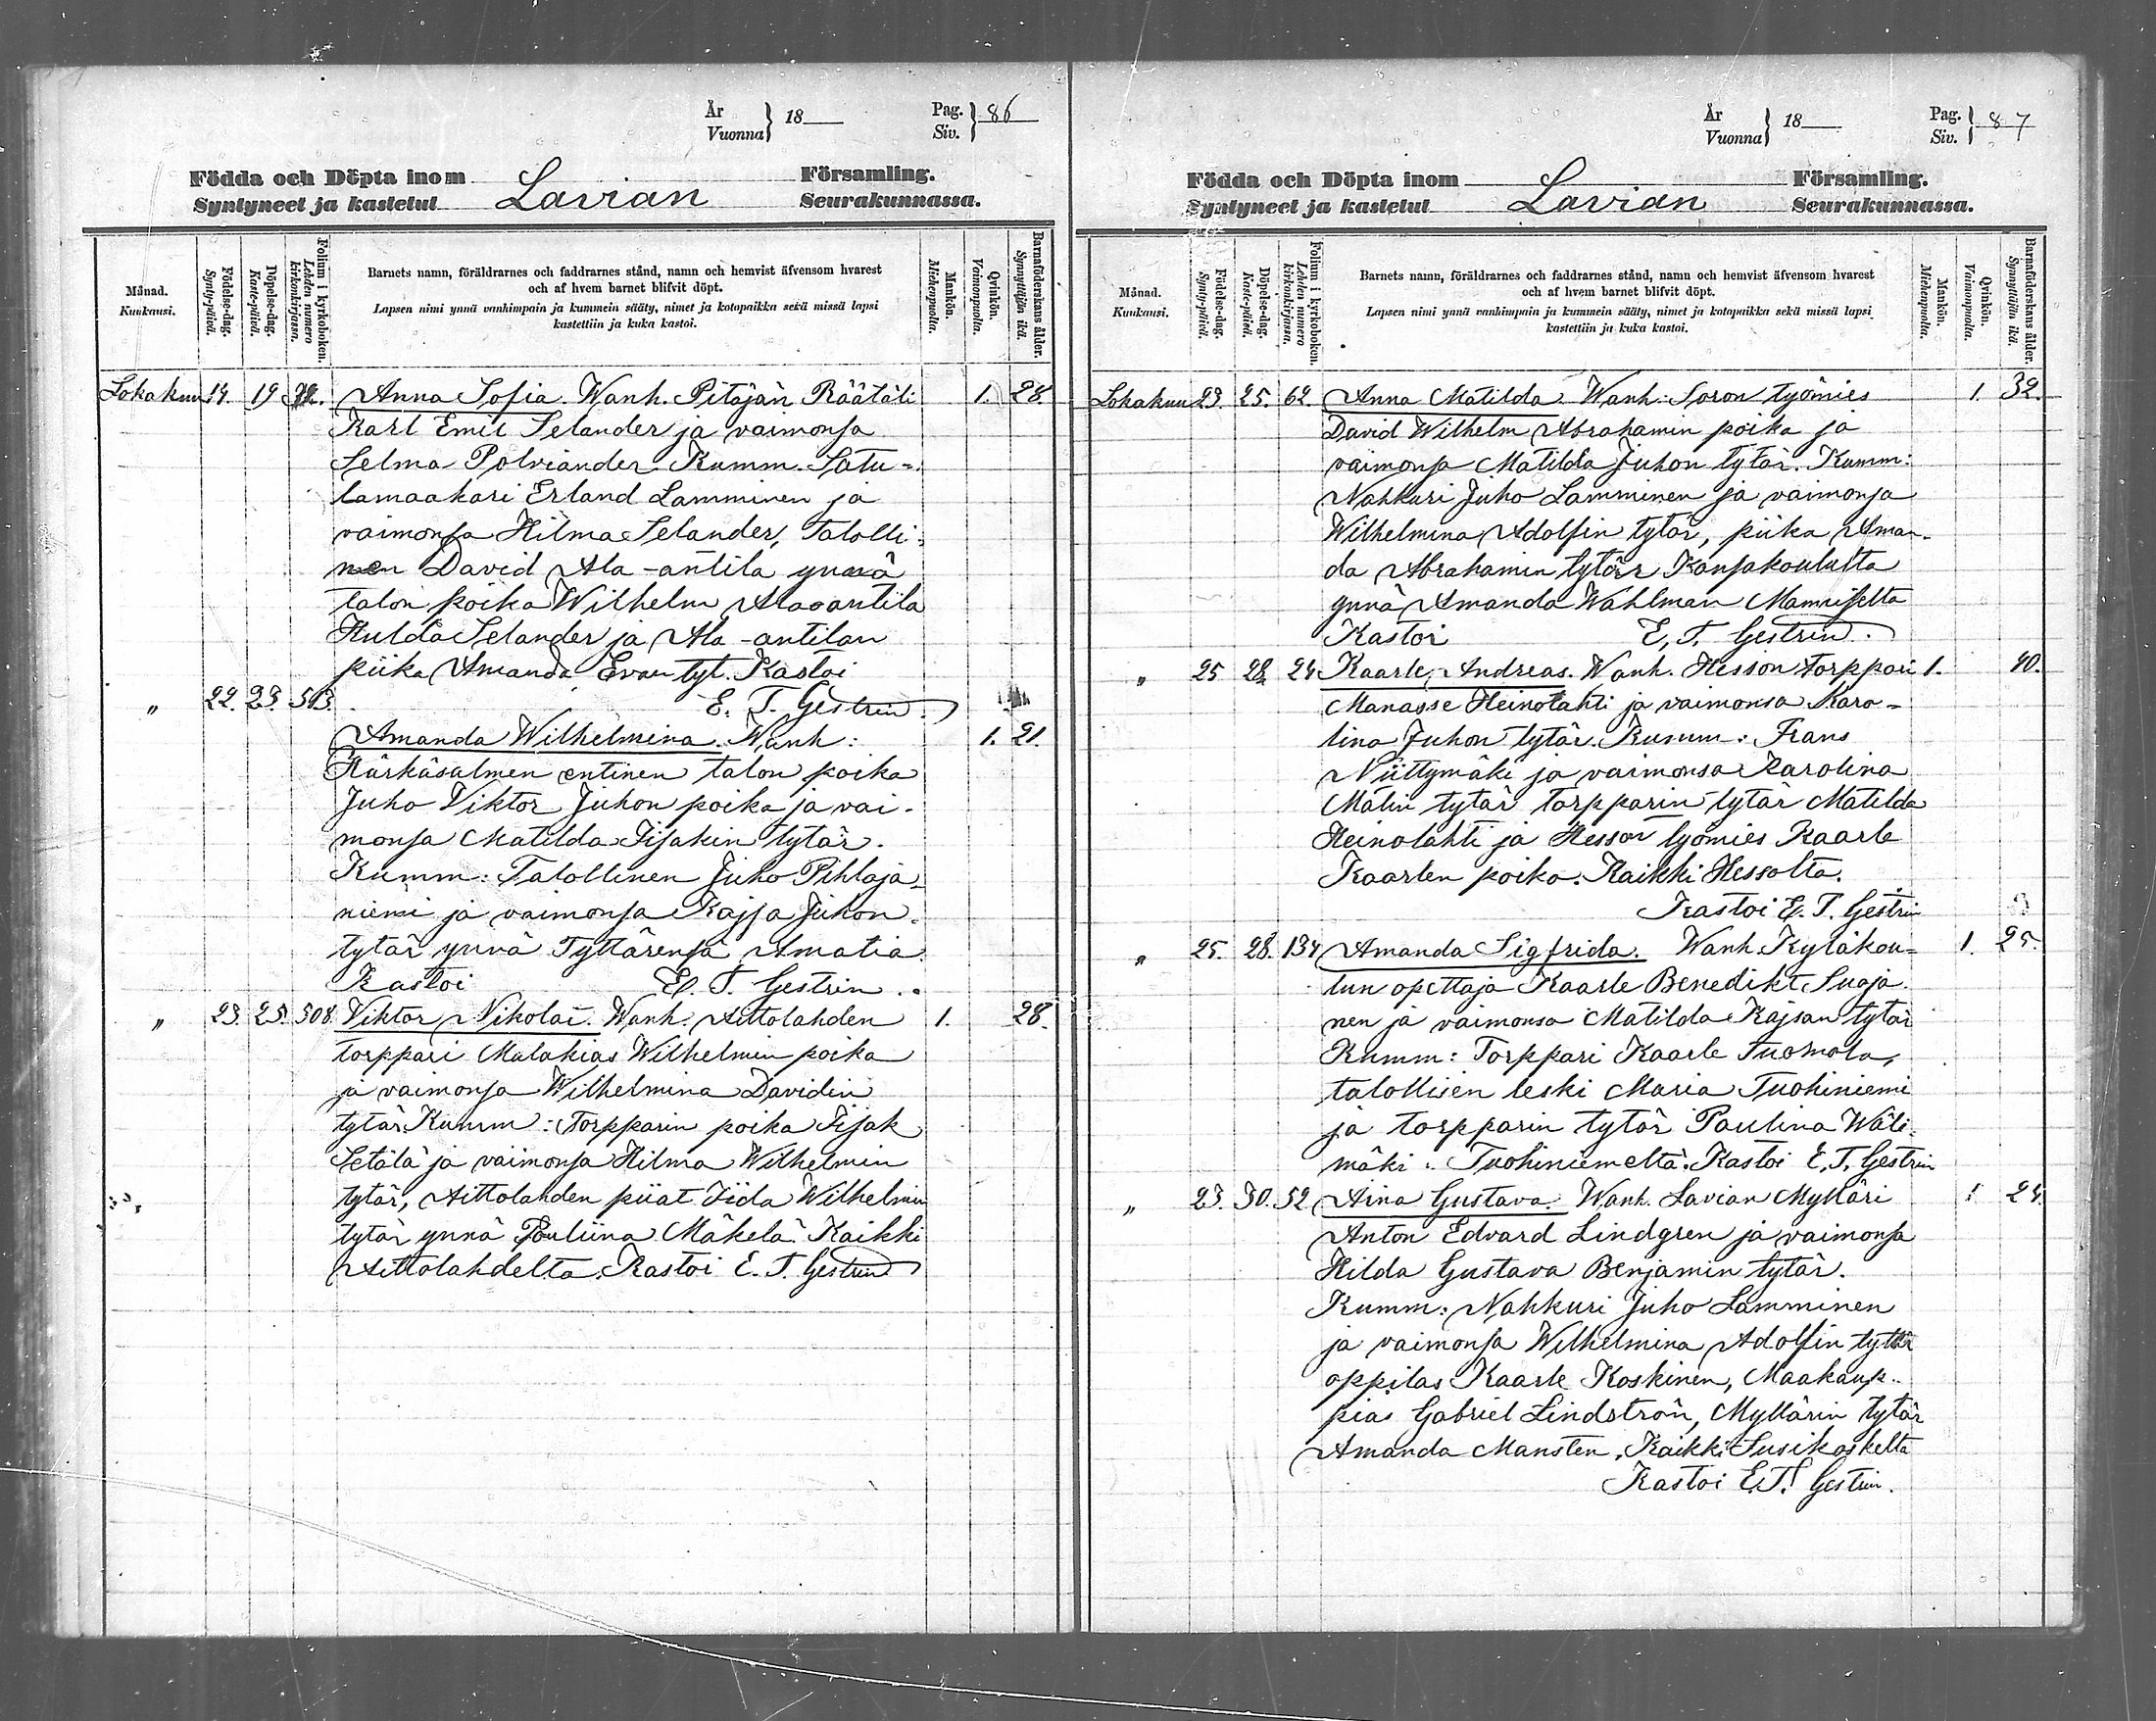 År
Vuonna } 18
Pag.
Siv. } 86
Födda och Döpta inom Församling.
Syntyneet ja kastetut Lavian Seurakunnassa.
Månad.
Kuukausi.
Födelse-dag.
Synty-päivä.
Döpelse-dag.
Kaste-päivä.
Folium i kyrkoboken.
Lehden numero kirkonkirjassa.
Barnets namn, föräldrarnes och faddrarnes stånd, namn och hemvist äfvensom hvarest
och af hvem barnet blifvit döpt.
Lapsen nimi ynnä vanhimpain ja kummein sääty, nimet ja kotopaikka sekä missä lapsi
kastettiin ja kuka kastoi.
Mankön.
Miehenpuolta.
Qvinkön.
Vaimonpuolta.
Barnaföderskans ålder.
Synnyttäjän ikä.
Lokakuu 14. 19 Anna Sofia. Wanh. Pitäjän Räätäli 1. 28.
Karl Emil Selander ja vaimonsa
Selma Polviander. Kumm. Satu-
lamaakari Erland Lamminen ja
vaimonsa Hilma Selander, talolli-
nen David Ala-antila ynnä
talon poika Wilhelm Alaantila
Hulda Selander ja Ala-antilan
piika Amanda Evan tyt. Kastoi
" 22. 23. 513. E. T. Gestrin.
Amanda Wilhelmina. Wanh: 1. 21.
Kärkäsalmen entinen talon poika
Juho Viktor Juhon poika ja vai-
monsa Matilda Iisakin tytär.
Kumm: Talollinen Juho Pihlaja-
niemi ja vaimonsa Kajsa Juhon-
tytär ynnä Tyttärensä Amalia
Kastoi E. T. Gestrin.
" 23. 25. 508. Viktor Nikolai. Wanh. Aittolahden 1. 28.
torppari Malakias Wilhelmin poika
ja vaimonsa Wilhelmina Davidin
tytär Kumm: Torpparin poika Iisak
Setälä ja vaimonsa Hilma Wilhelmin
tytär, Aittolahden piiat Iida Wilhelmin
tytär ynnä Pauliina Mäkelä. Kaikki
Aittolahdelta. Kastoi E. T. Gestrin
År
Vuonna } 18
Pag.
Siv. } 87
Födda och Döpta inom Församling.
Syntyneet ja kastetut Lavian Seurakunnassa.
Månad.
Kuukausi.
Födelse-dag.
Synty-päivä.
Döpelse-dag.
Kaste-päivä.
Folium i kyrkoboken.
Lehden numero kirkonkirjassa.
Barnets namn, föräldrarnes och faddrarnes stånd, namn och hemvist äfvensom hvarest
och af hvem barnet blifvit döpt.
Lapsen nimi ynnä vanhimpain ja kummein sääty, nimet ja kotopaikka sekä missä lapsi
kastettiin ja kuka kastoi.
Mankön.
Miehenpuolta.
Qvinkön.
Vaimonpuolta.
Barnaföderskans ålder.
Synnyttäjän ikä.
Lokakuu 23. 25. 62. Anna Matilda. Wanh: Soron työmies 1. 32.
David Wilhelm Abrahamin poika ja
vaimonsa Matilda Juhon tytär. Kumm:
Nahkuri Juho Lamminen ja vaimonsa
Wilhelmina Adolfin tytär, piika Aman-
da Abrahamin tytär Kansakoululta
ynnä Amanda Wahlman Mannisselta
Kastoi E. T. Gestrin.
" 25 28. 24 Kaarle Andreas. Wanh. Hesson torppari 1. 40.
Manasse Heinolahti ja vaimonsa Karo-
lina Juhon tytär. Kumm: Frans
Niittymäki ja vaimonsa Karolina
Matin tytär torpparin tytär Matilda
Heinolahti ja Hesson työmies Kaarle
Kaarlen poika. Kaikki Hessolta.
Kastoi E. T. Gestrin
" 25. 28. 134 Amanda Sigfrida. Wanh. Kyläkou- 1. 25.
lun opettaja Kaarle Benedikt Suoja-
nen ja vaimonsa Matilda Kajsan tytär
Kumm: Torppari Kaarle Tuomola,
talollisen leski Maria Tuohiniemi
ja torpparin tytär Paulina Wäli-
mäki. Tuohiniemeltä. Kastoi E. T. Gestrin
" 23. 30. 52 Aina Gustava. Wanh. Lavian Mylläri 1 24.
Anton Edvard Lindgren ja vaimonsa
Hilda Gustava Benjamin tytär.
Kumm: Nahkuri Juho Lamminen
ja vaimonsa Wilhelmina Adolfin tytär
oppilas Kaarle Koskinen, Maakaup-
pias Gabriel Lindströn, Myllärin tytär
Amanda Mansten. Kaikki Susikoskelta
Kastoi E. T. Gestrin.